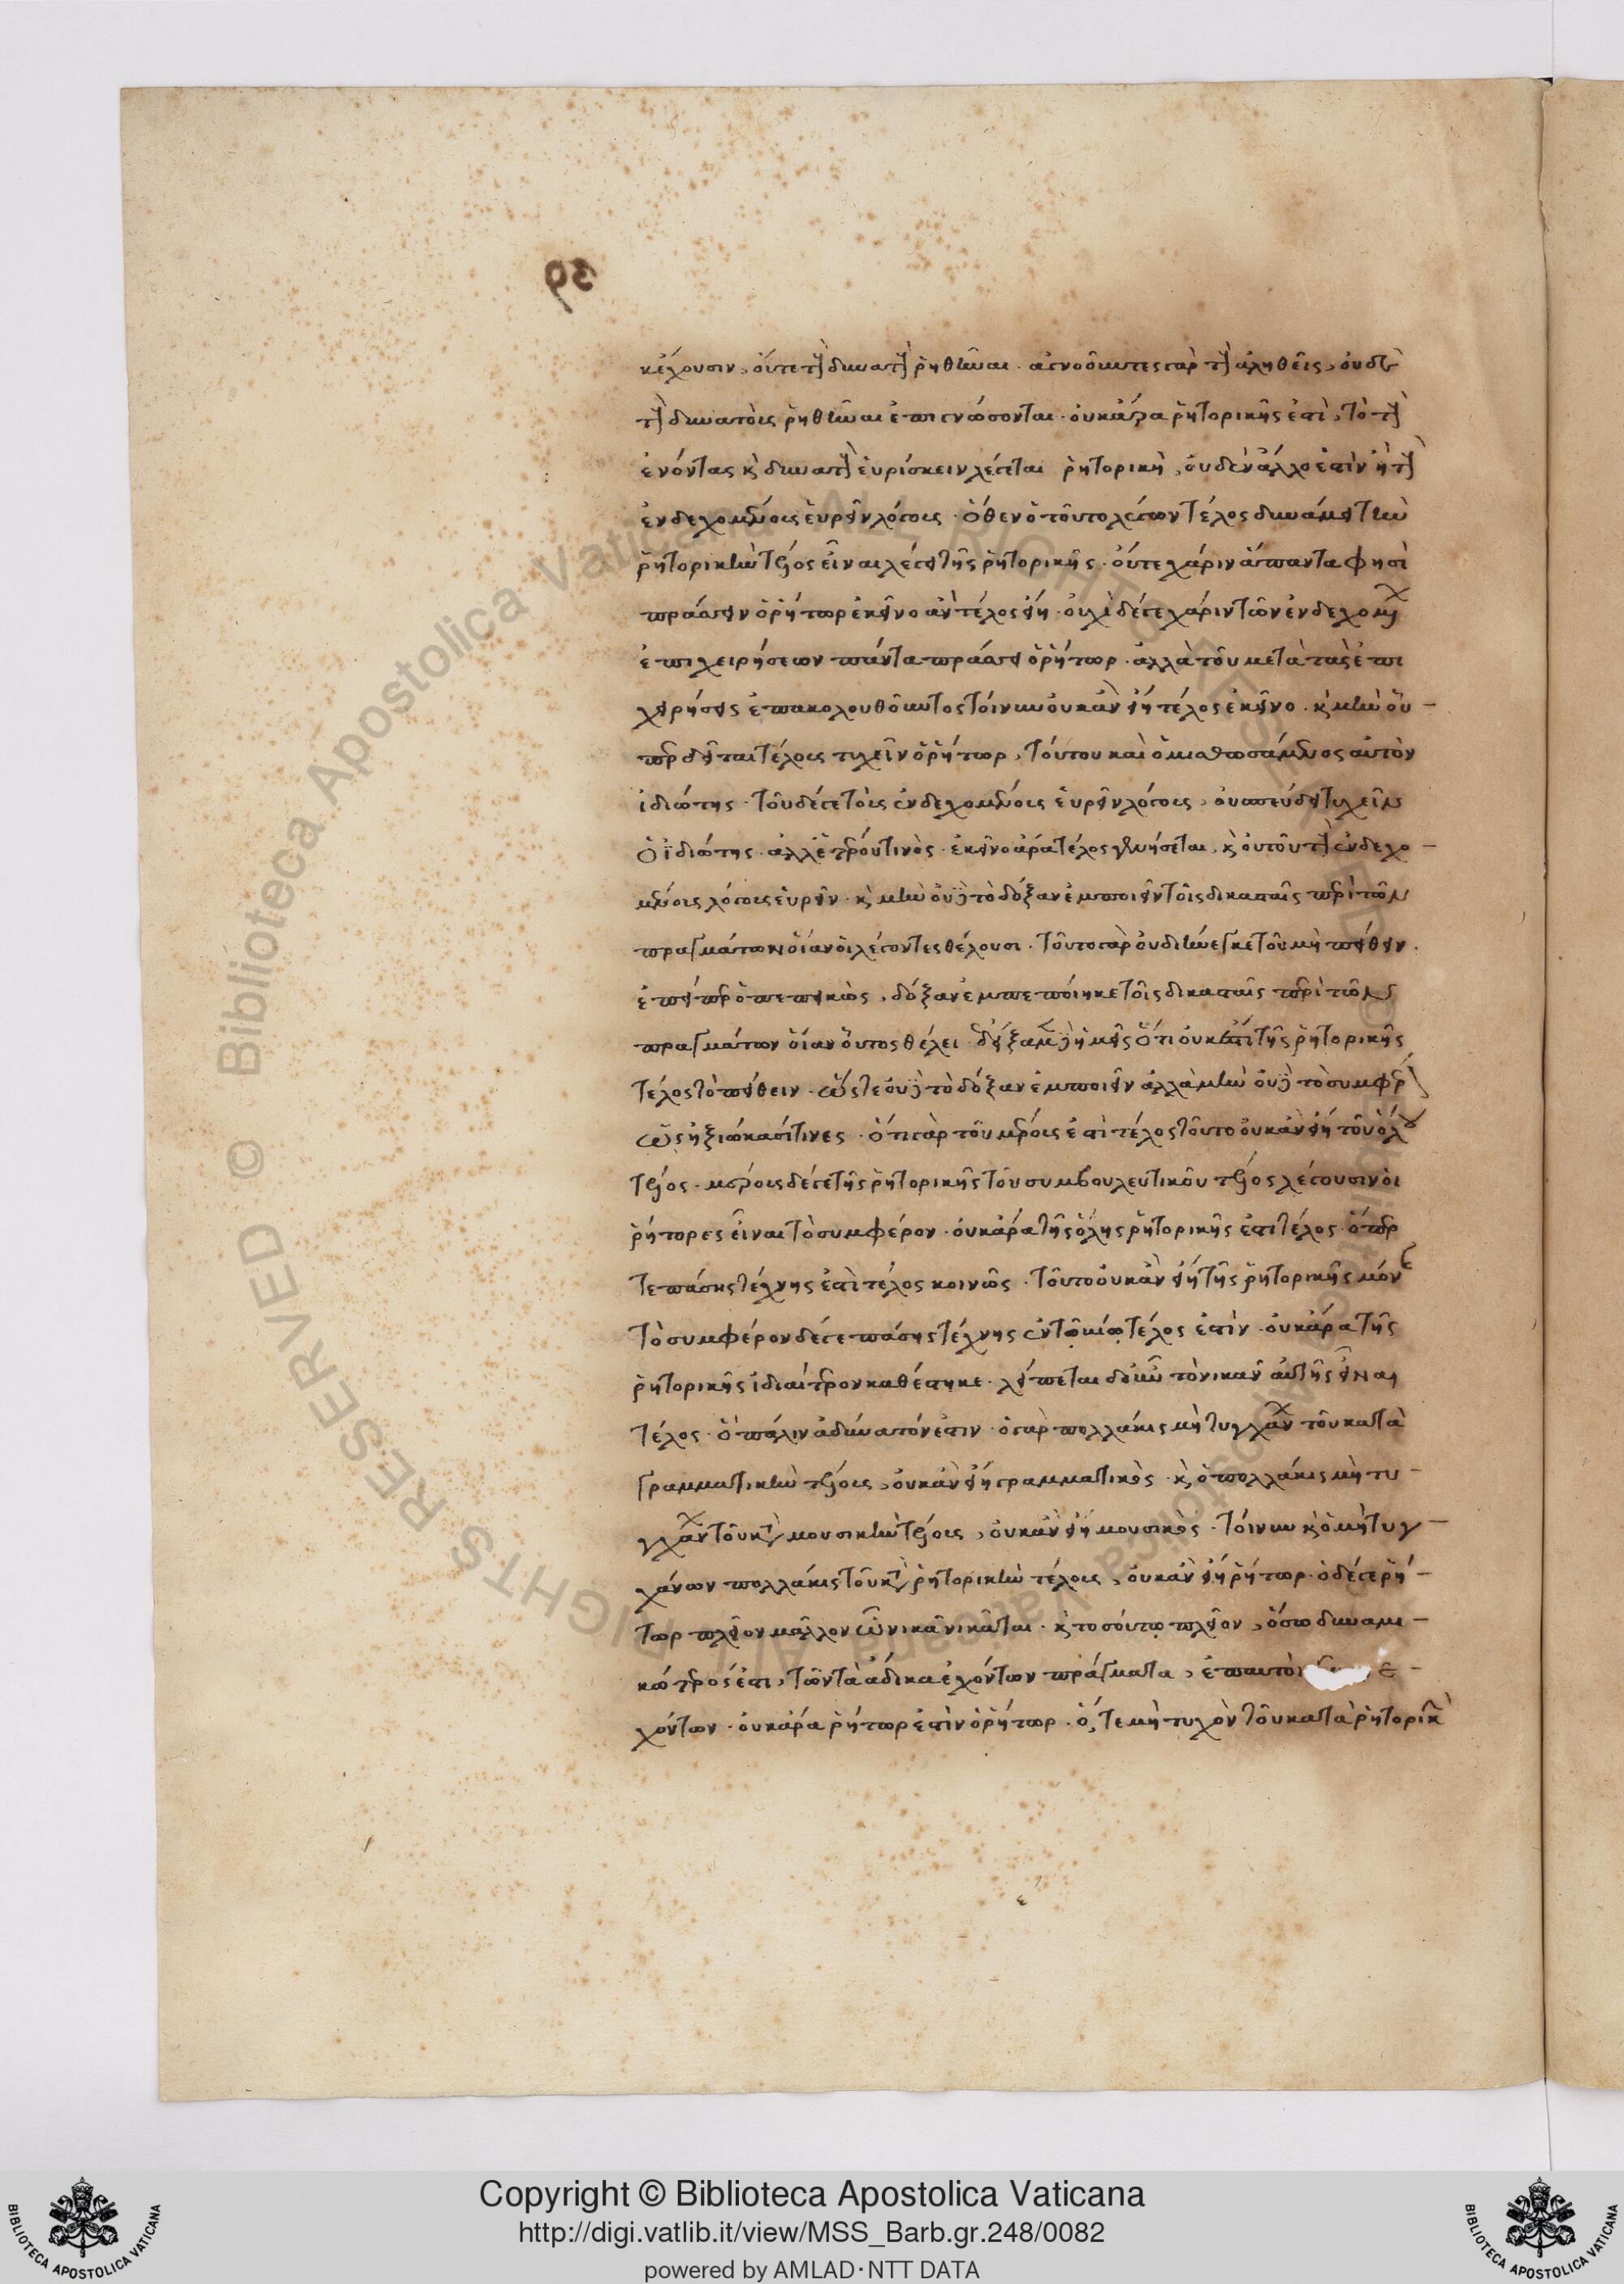 κέχουσιν, οὔτε τοῖς δυνατοῖς ῥηθῆναι. ἀγνοοῦντες γὰρ τοῖς ἀληθεῖς, οὐδὲ
τοῖς δυνατοὺς ῥηθῆναι ἐπιγνώσονται. οὐκ ἄρα ῥητορικῆς ἐστὶ, τὸ τοὺς
ἐνόντας καὶ δυνατοὺς εὑρίσκειν λέγεται ῥητορικὴ, οὐδὲν ἄλλο ἐστὶν ἢ τοὺς
ἐνδεχομένους εὑρεῖν λόγους. ὅθεν ὁ τοῦτο λέγων τέλος δυνάμει τὴν
ῥητορικὴν τέλος εἶναι λέγει τῆς ῥητορικῆς. οὗτε χάριν ἅπαντα φησὶ
πράσσειν ὁ ῥήτωρ ἐκεῖνο ἂν τέλος εἴη. οὐχὶ δέ γε χάριν τῶν ἐνδεχομένων
ἐπιχειρήσεων πάντα πράσσει ὁ ῥήτωρ. ἀλλὰ τοῦ μετὰ τὰς ἐπι
χειρήσεις ἐπακολουθοῦντος τοίνυν οὐκ ἂν εἴη τέλος ἐκεῖνο. καὶ μὴν οὗ
περ δεῖται τέλους τυχεῖν ὁ ῥήτωρ, τούτου καὶ ὁ μισθωσάμενος αὐτὸν
ἰδιώτης. τοῦ δέ γε τοὺς ἐνδεχομένους εὑρεῖν λόγους, οὐ σπεύδει τυχεῖν
ὁ ἰδιώτης. ἀλλ' ἑτέρου τινὸς. ἐκεῖνο ἄρα τέλος γενήσεται, καὶ οὐ τοῦ τοὺς ἐνδεχο
μένους λόγους εὑρεῖν. καὶ μὴν οὐδὲ τὸ δόξαν ἐμποιεῖν τοῖς δικασταῖς περὶ τῶν
πραγμάτων οἵαν οἱ λέγοντες θέλουσι. τοῦτο γὰρ οὐ διήνεγκε τοῦ μὴ πείθειν.
ἐπείπερ ὁ πεπεικὼς, δόξαν ἐμπεποίηκε τοῖς δικασταῖς περὶ τῶν
πραγμάτων οἵαν οὗτος θέλει. ἐδείξαμεν δὲ ἡμεῖς ὅτι οὐκ ἔστι τῆς ῥητορικῆς
τέλος τὸ πείθειν. ὥστε οὐδὲ τὸ δόξαν ἐμποιεῖν ἀλλὰ μὴν οὐδὲ τὸ συμφέρον
ὡς ἠξιώκασί τινες. ὅτι γὰρ τοῦ μέρους ἐστὶ τέλος τοῦτο οὐκ ἂν εἴη τοῦ ὅλου
τέλος. μέρους δέ γε τῆς ῥητορικῆς τοῦ συμβουλευτικοῦ τέλος λέγουσιν οἱ
ῥήτορες εἶναι τὸ συμφέρον. οὐκ ἄρα τῆς ὅλης ῥητορικῆς ἐστι τέλος. ὅπερ
τε πάσης τέχνης ἐστὶ τέλος κοινῶς. τοῦτο οὐκ ἂν εἴη τῆς ῥητορικῆς μόνης
τὸ συμφέρον δέ γε πάσης τέχνης ἐν τῷ βίῳ τέλος ἐστίν. οὐκ ἄρα τῆς
ῥητορικῆς ἰδιαίτερον καθέστηκε. λείπεται δ' οὖν τὸ νικᾶν αὐτῆς εἶναι
τέλος. ὃ πάλιν ἀδύνατόν ἐστιν. ὁ γὰρ πολλάκις μὴ τυγχάνων τοῦ κατὰ
γραμματικὴν τέλους, οὐκ ἂν εἴη γραμματικὸς. καὶ ὁ πολλάκις μὴ τυ
γχάνων τοῦ κατὰ μουσικὴν τέλους, οὐκ ἂν εἴη μουσικὸς. τοίνυν καὶ ὁ μὴ τυγ
χάνων πολλάκις τοῦ κατὰ ῥητορικὴν τέλους, οὐκ ἂν εἴη ῥήτωρ. ὁ δέ γε ῥή
τωρ πλεῖον μᾶλλον ὢν νικᾶν νικᾶται. καὶ τοσούτῳ πλεῖον, ὅσῳ δυναμι
κώτερός ἐστι, τῶν τὰ ἄδικα ἐχόντων πράγματα, ἐπ' αὐτὸν ἐ
χόντων. οὐκ ἄρα ῥήτωρ ἐστὶν ὁ ῥήτωρ. ὅ, τε μὴ τυχὼν τοῦ κατὰ ῥητορικὴν
Copyright © Biblioteca Apostolica Vaticana
http://digi.vatlib.it/view/MSS_Barb.gr.248/0082
powered by AMLAD·NTT DATA
BIBLIOTECA APOSTOLICA VATICANA
BIBLIOTECA APOSTOLICA VATICANA